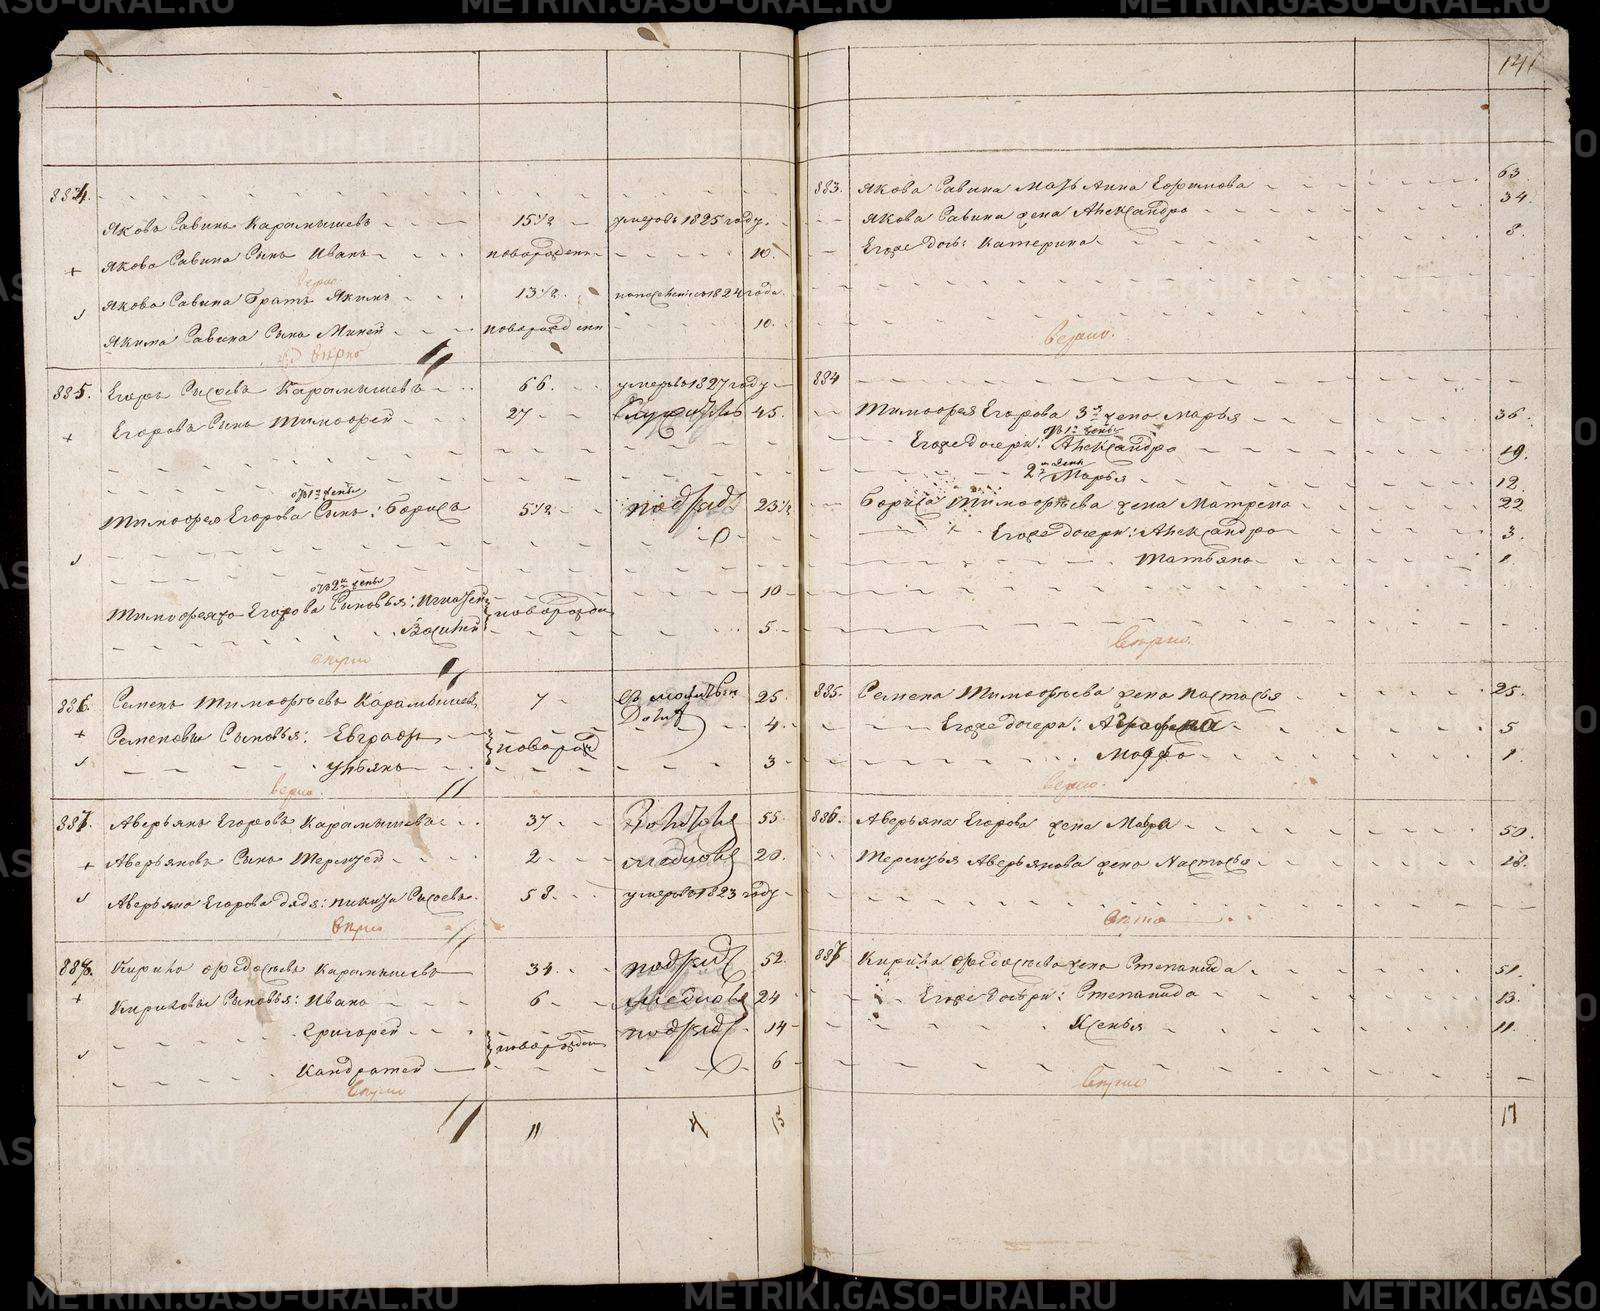 METRIKI.GASO-URAL.RU
141
884.
Яковъ Савинъ Карамышевъ 15 1/2 умеръ въ 1825 году.
+ Якова Савина Сынъ Иванъ новорожден 10.
верно
Якова Савина Братъ Якимъ 13 1/2. 1824 года
Якима Савина Сынъ Миней новорожденн 10.
верно
885. Егоръ Сысоевъ Карамышевъ 66. умеръ въ 1827 году
+ Егоровъ Сынъ Тимофей 27 45.
отъ 1й жены
Тимофея Егорова Сынъ: Борисъ 5 1/2 23 1/2
отъ 2й жены
Тимофея Егорова Сыновья: Игнатей новорожден 10
Василий 5.
верно
886. Семенъ Тимофеевъ Карамышевъ 7 25.
+ Семеновы Сыновья: Евграфъ новорожд 4.
Ульянъ 3
верно.
887. Аверьянъ Егоровъ Карамышевъ 37 55.
+ Аверьяновъ Сынъ Терентей 2. 20.
Аверьяна Егорова дядя: Никита Сысоевъ. 58. умеръ въ 1823 году
верно
888. Кирило Федосеевъ Карамышевъ 34. 52.
+ Кириловы Сыновья: Иванъ 6 24
Григорей новорожден 14
Кандратей 6
верно
11 4 15
883. Якова Савина Мать Анна Ефимова 63.
Якова Савина жена Александра 34.
Егоже дочь: Катерина 8.
верно.
884
Тимофея Егорова 3я жена Марья 36.
отъ 1й жены
Егоже дочери: Александра 19.
2й жены
Марья 12.
Бориса Тимофеева жена Матрена 22
Егоже дочери: Александра 3.
Татьяна 1.
верно.
885. Семена Тимофеева жена Настасья 25.
Егоже дочери: Аграфена 5
Марфа 1.
верно.
886. Аверьяна Егорова жена Мавра 50.
Терентья Аверьянова жена Настасья 18.
верно
887 Кирила Федосеева жена Степанида 51.
Егоже дочери: Степанида 13.
Ксенья 11.
верно
17